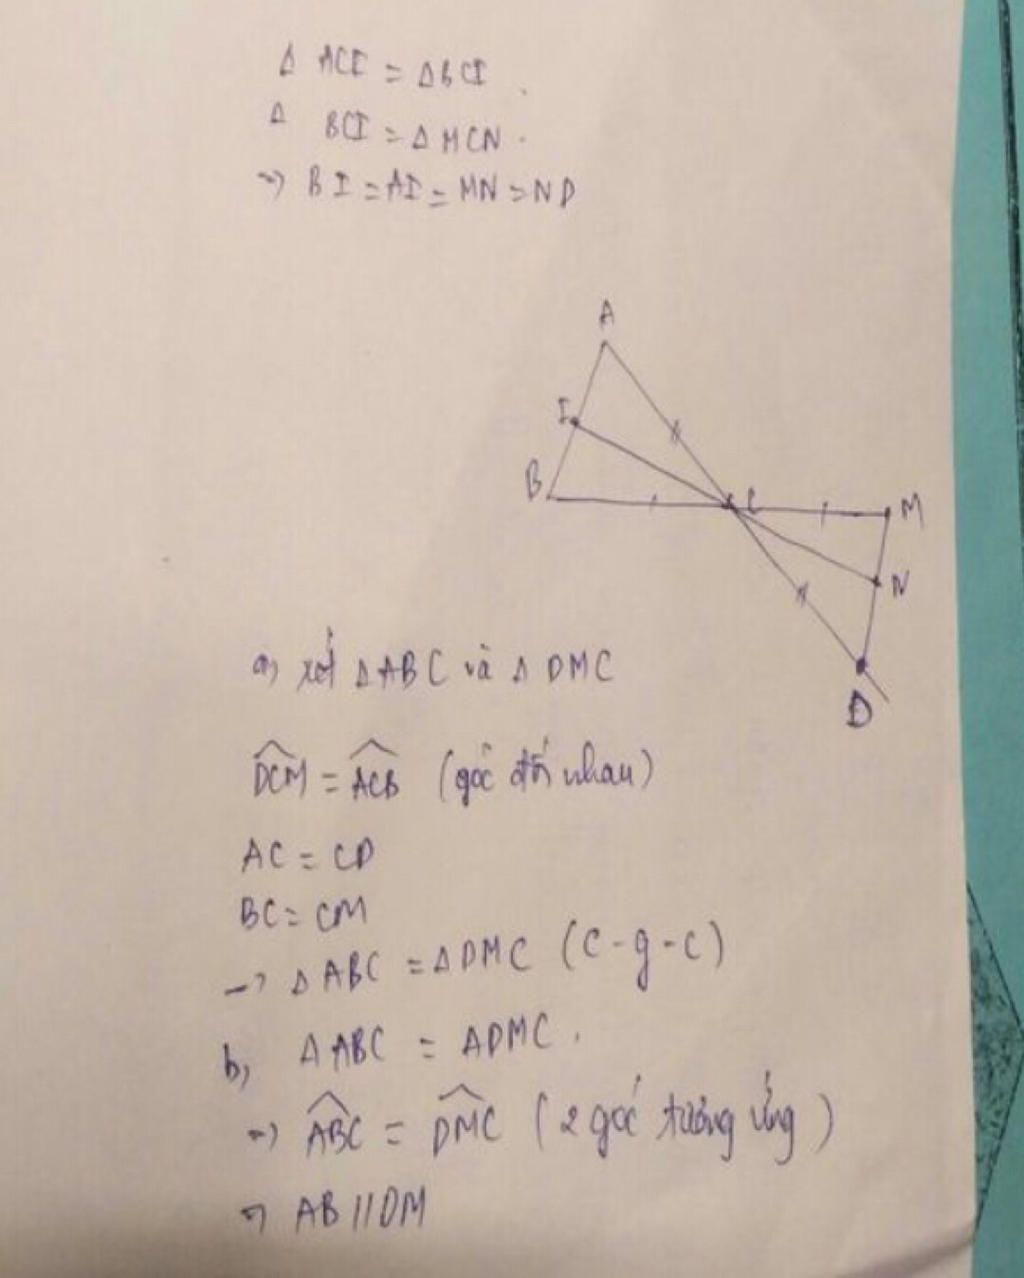 Δ ACI = ΔBCI.
Δ BCI = Δ MCN.
=> BI = AI = MN = ND
A
I
B
C
M
N
D
a, xét Δ ABC và Δ DMC
DCM = ACB (góc đối nhau)
AC = CD
BC = CM
-> Δ ABC = Δ DMC (c-g-c)
b, Δ ABC = ΔDMC.
=> ABC = DMC (2 góc tương ứng)
=> AB // DM